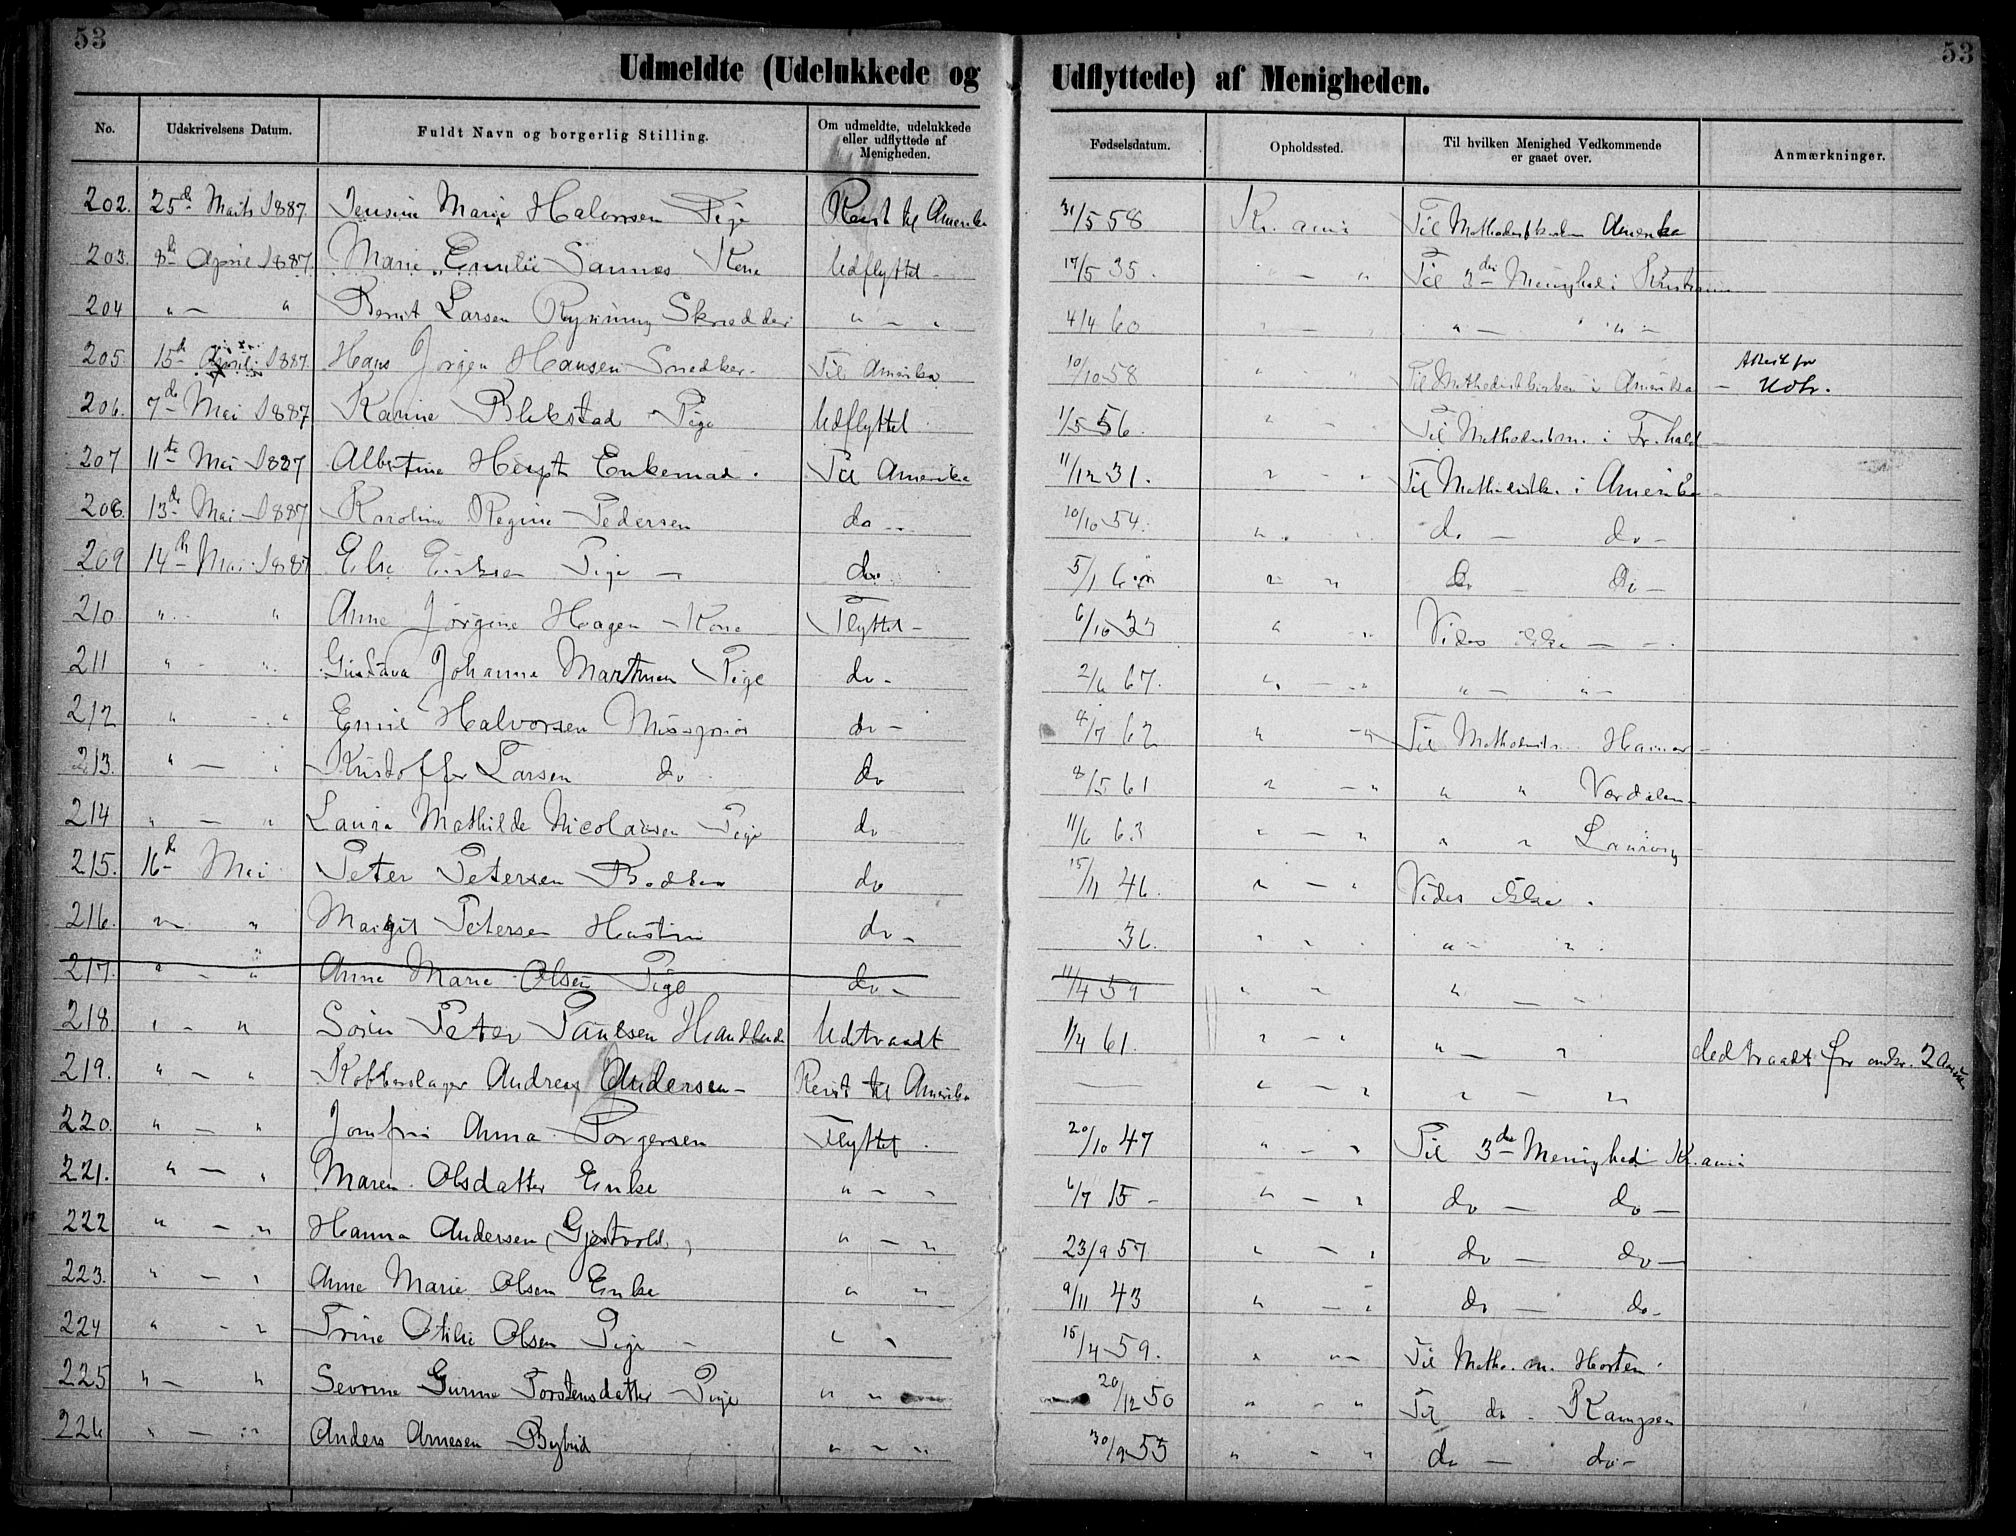 53
53
Udmeldte (Udelukkede og Udflyttede) af Menigheden.
No. Udskrivelsens Datum. Fuldt Navn og borgerlig Stilling. Om udmeldte, udelukkede eller udflyttede af Menigheden. Fødselsdatum. Opholdssted. Til hvilken Menighed Vedkommende er gaaet over. Anmærkninger.
202. 25de Marts 1887. Jensine Marie Halvorsen Pige Reist til Amerika 31/5 58 Kr.ania Til Methodistkirken Amerika
203. 8de April 1887. Marie Emilie Sannes Kone Udflyttet - 17/5 35. " - " Til 3die Menighed i Kristiania
204 " - " Bernt Larsen Skrædder " - " 4/4 60 " - " " - " " " -
205. 15de April 1887. Hans Jørgen Hansen Snedker. Til Amerika 10/10 58 " " Til Methodistkirken i Amerika - Attest for Udtr.
206. 7de Mai 1887 Karine Blekstad Pige Udflyttet 1/5 56. " - " Til Methodistm. i Fr.hald
207 11te Mai 1887 Albertine Enkemad. Til Amerika 11/12 31. " - " Til Methodistk. i Amerika
208. 13de Mai 1887 Karoline Regine Pedersen do - 10/10 54. " " do - do -
209 14de Mai 1887 Else Eriksen Pige - do. 5/1 " " do - do -
210 " - " Anne Jørgine Hagen - Kone Flyttet - 6/10 " " Vides ikke - -
211 " - " Gustava Johanne Martinsen Pige do - 2/6 67. " - " " - " -
212 " - " Emil Halvorsen Missionær do - 4/7 62 " - " Til Methodistk. Hamar -
213. " - " Kristoffer Larsen do do 8/5 61 " - " " " Værdalen -
214 " - " Laura Mathilde Nicolaisen Pige do 11/6 63 " - " " " Laurvig
215. 16de Mai Peter Petersen Bødker do 15/11 46. " - " Vides ikke.
216. " " Margit Petersen Hustru do - 36. " - " " - "
217. " - " Anne Marie Olsen Pige do - 11/4 59 " " " - "
218. " - " Sørin Peter Paulsen Udtraadt 1/4 61. " - " " - " Udtraadt for
219. " - " Kobberslager Andreas Andersen - Reist til Amerika - " - " " - "
220. " - " Jomfru Anna Torgersen Flyttet. 20/10 47 " - " Til 3die Menighed Kr.ania
221. " - " Maren Olsdatter Enke " - " 6/7 15 - " - " do - do -
222 " - " Hanna Andersen (Gjestvold) " - " 23/9 57 " - " do - do -
223. " - " Anne Marie Olsen Enke " " 9/11 43 " - " do - do -
224 " - " Trine Otilie Olsen Pige - " " 15/4 59. " " - Til Metho. m. Horten.
225 " - " Sevrine Gurine Torstensdatter Pige " " 20/12 50 " - " Til do -
226 " - " Anders Arnesen Bybud " - " 30/9 55 " - " do - do -